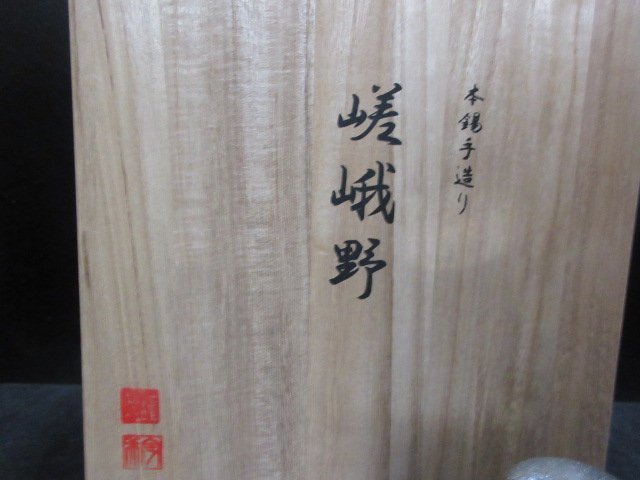 本錫手造り
嵯峨野